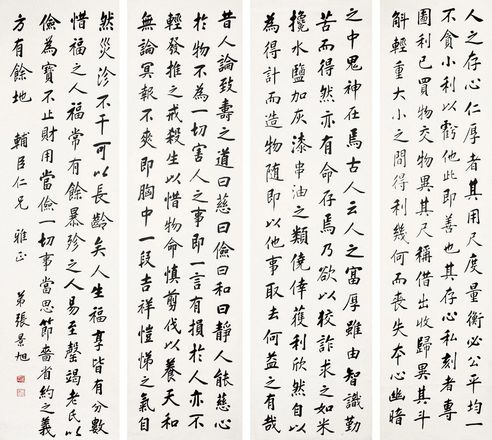 人之存心仁恕者其用尺度量衡必公平均一
不貪小利以虧他此即善也其存心私刻者專
圖利己買物交物異其尺稱借出收歸異其斗
斛輕重大小之間得利幾何而喪失本心幽暗
之中鬼神在焉古人云人之富厚雖由智識勤
苦而得然亦有命存焉乃欲以狡詐求之如米
攙水鹽加灰漆串油之類僥倖獲利欣然自以
為得計而造物隨即以他事取去何益之有哉
昔人論致壽之道曰慈曰儉曰和曰靜人能慈心
於物不為一切害人之事即一言有損於人亦不
輕發推之戒殺生以惜物命慎剪伐以養天和
無論冥報不爽即胸中一段吉祥愷悌之氣自
然災沴不干可以長齡矣人生福享皆有分數
惜福之人福常有餘暴殄之人易至罄竭老氏以
儉為寶不止財用當儉一切事當思節嗇省約之義
方有餘地 輔臣仁兄 雅正 弟張景旭